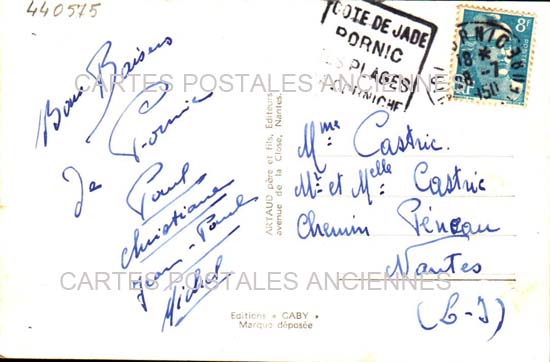 440575
COTE DE JADE
PORNIC
SES PLAGES
CORNICHE
PORNIC
18 *
8 - 7
1950
8F
RF
CARTES POSTALES ANCIENNES
Bons Baisers
de Pornic
Paul
Christiane
Jean-Paul
Michel
ARTAUD père et fils, Editeurs
avenue de la Close, Nantes.
Mme Castric.
Mr et Melle Castric
Chemin Féneau
Nantes
(L-I)
CARTES POSTALES ANCIENNES
Editions « GABY »
Marque déposée